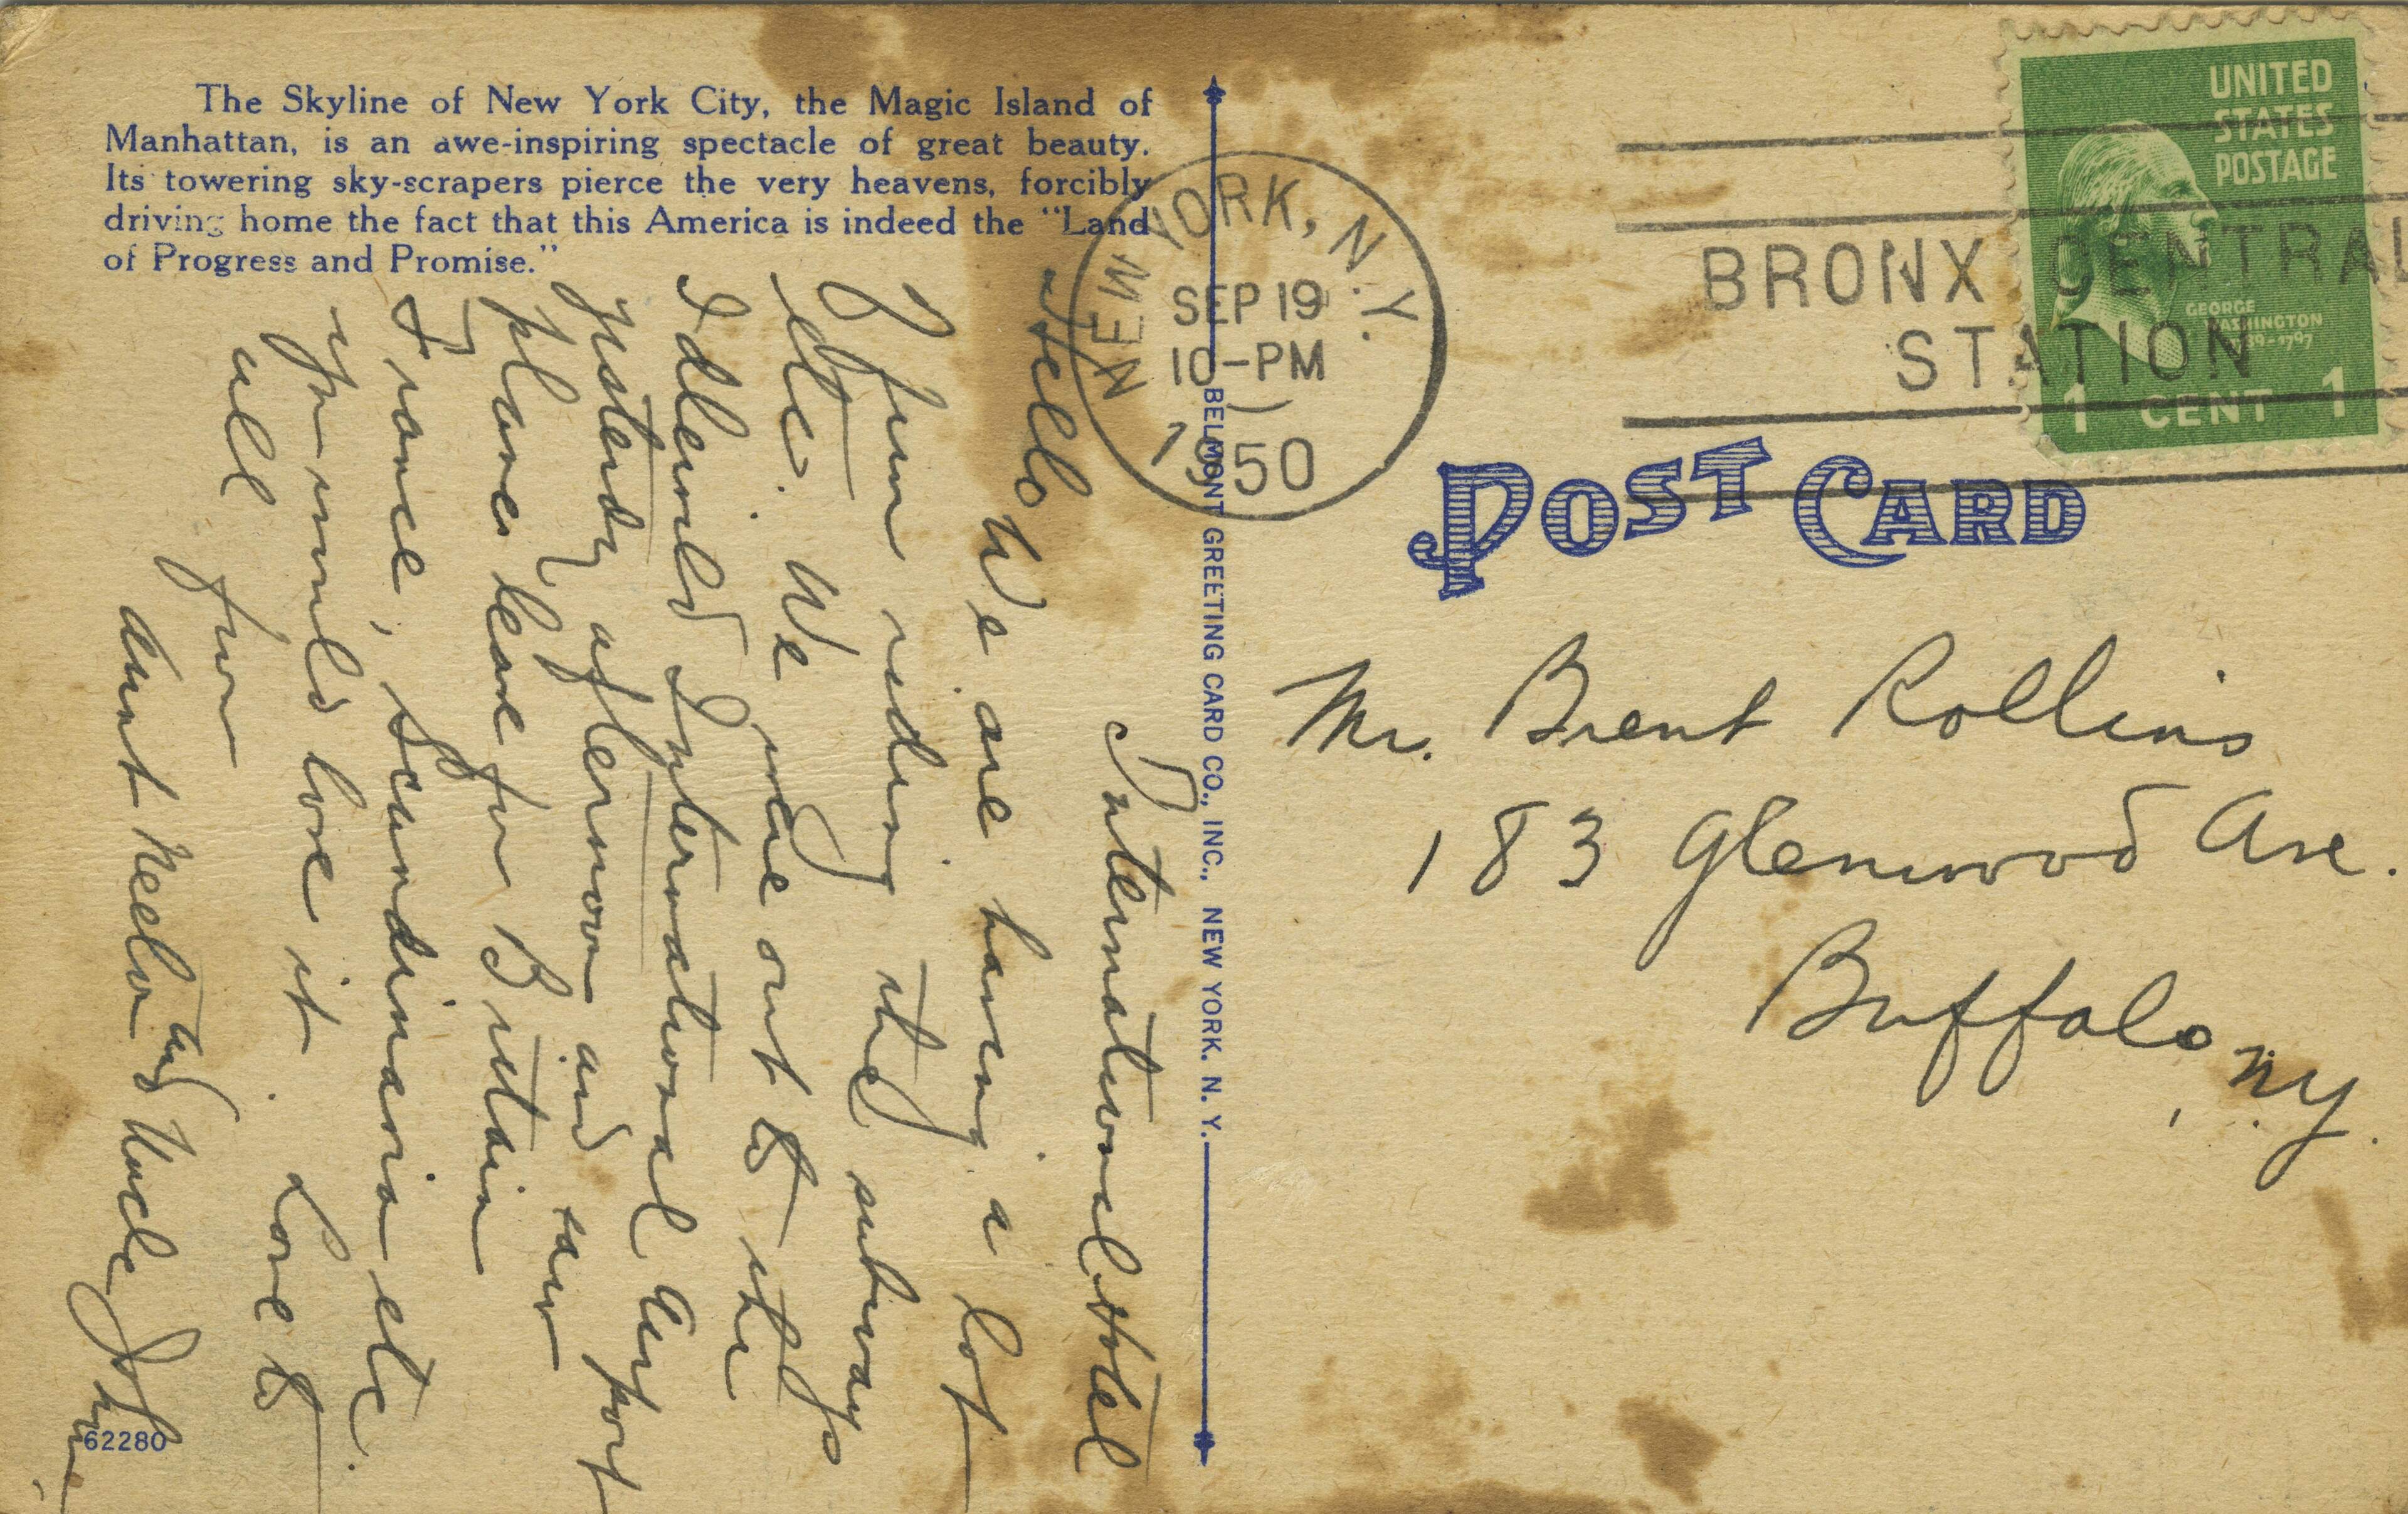 The Skyline of New York City, the Magic Island of
Manhattan, is an awe-inspiring spectacle of great beauty.
Its towering sky-scrapers pierce the very heavens, forcibly
driving home the fact that this America is indeed the "Land
of Progress and Promise."
International Hotel
Hello We are having a lot
of fun riding the subways
etc. We were out to the
Idlewild International Airport
yesterday afternoon and saw
planes leave for Britain
France, Scandinavia etc.
you would love it. Love to
all from
Aunt and Uncle John
62280
BELMONT GREETING CARD CO., INC., NEW YORK. N. Y.
NEW YORK, N.Y.
SEP 19
10-PM
1950
BRONX CENTRAL
STATION
UNITED
STATES
POSTAGE
GEORGE
WASHINGTON
1789-1797
1 CENT 1
POST CARD
Mr. Brent Rollins
183 Glenwood Ave.
Buffalo, N.Y.